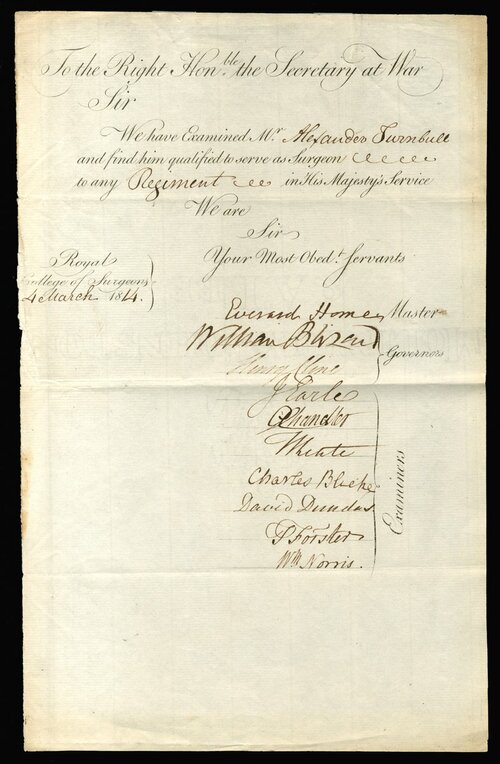 To the Right Hon.ble the Secretary at War
Sir
We have Examined Mr. Alexander Turnbull
and find him qualified to serve as Surgeon
to any Regiment in His Majesty's Service
We are
Sir
Your Most Obed.t Servants
Royal
College of Surgeons
4 March 1814.
Everard Home Master
William Blizard
Henry Cline
Governors
J Earle
Chandler
T Keate
Charles Blicke
David Dundas
T Forster
Wm Norris.
Examiners